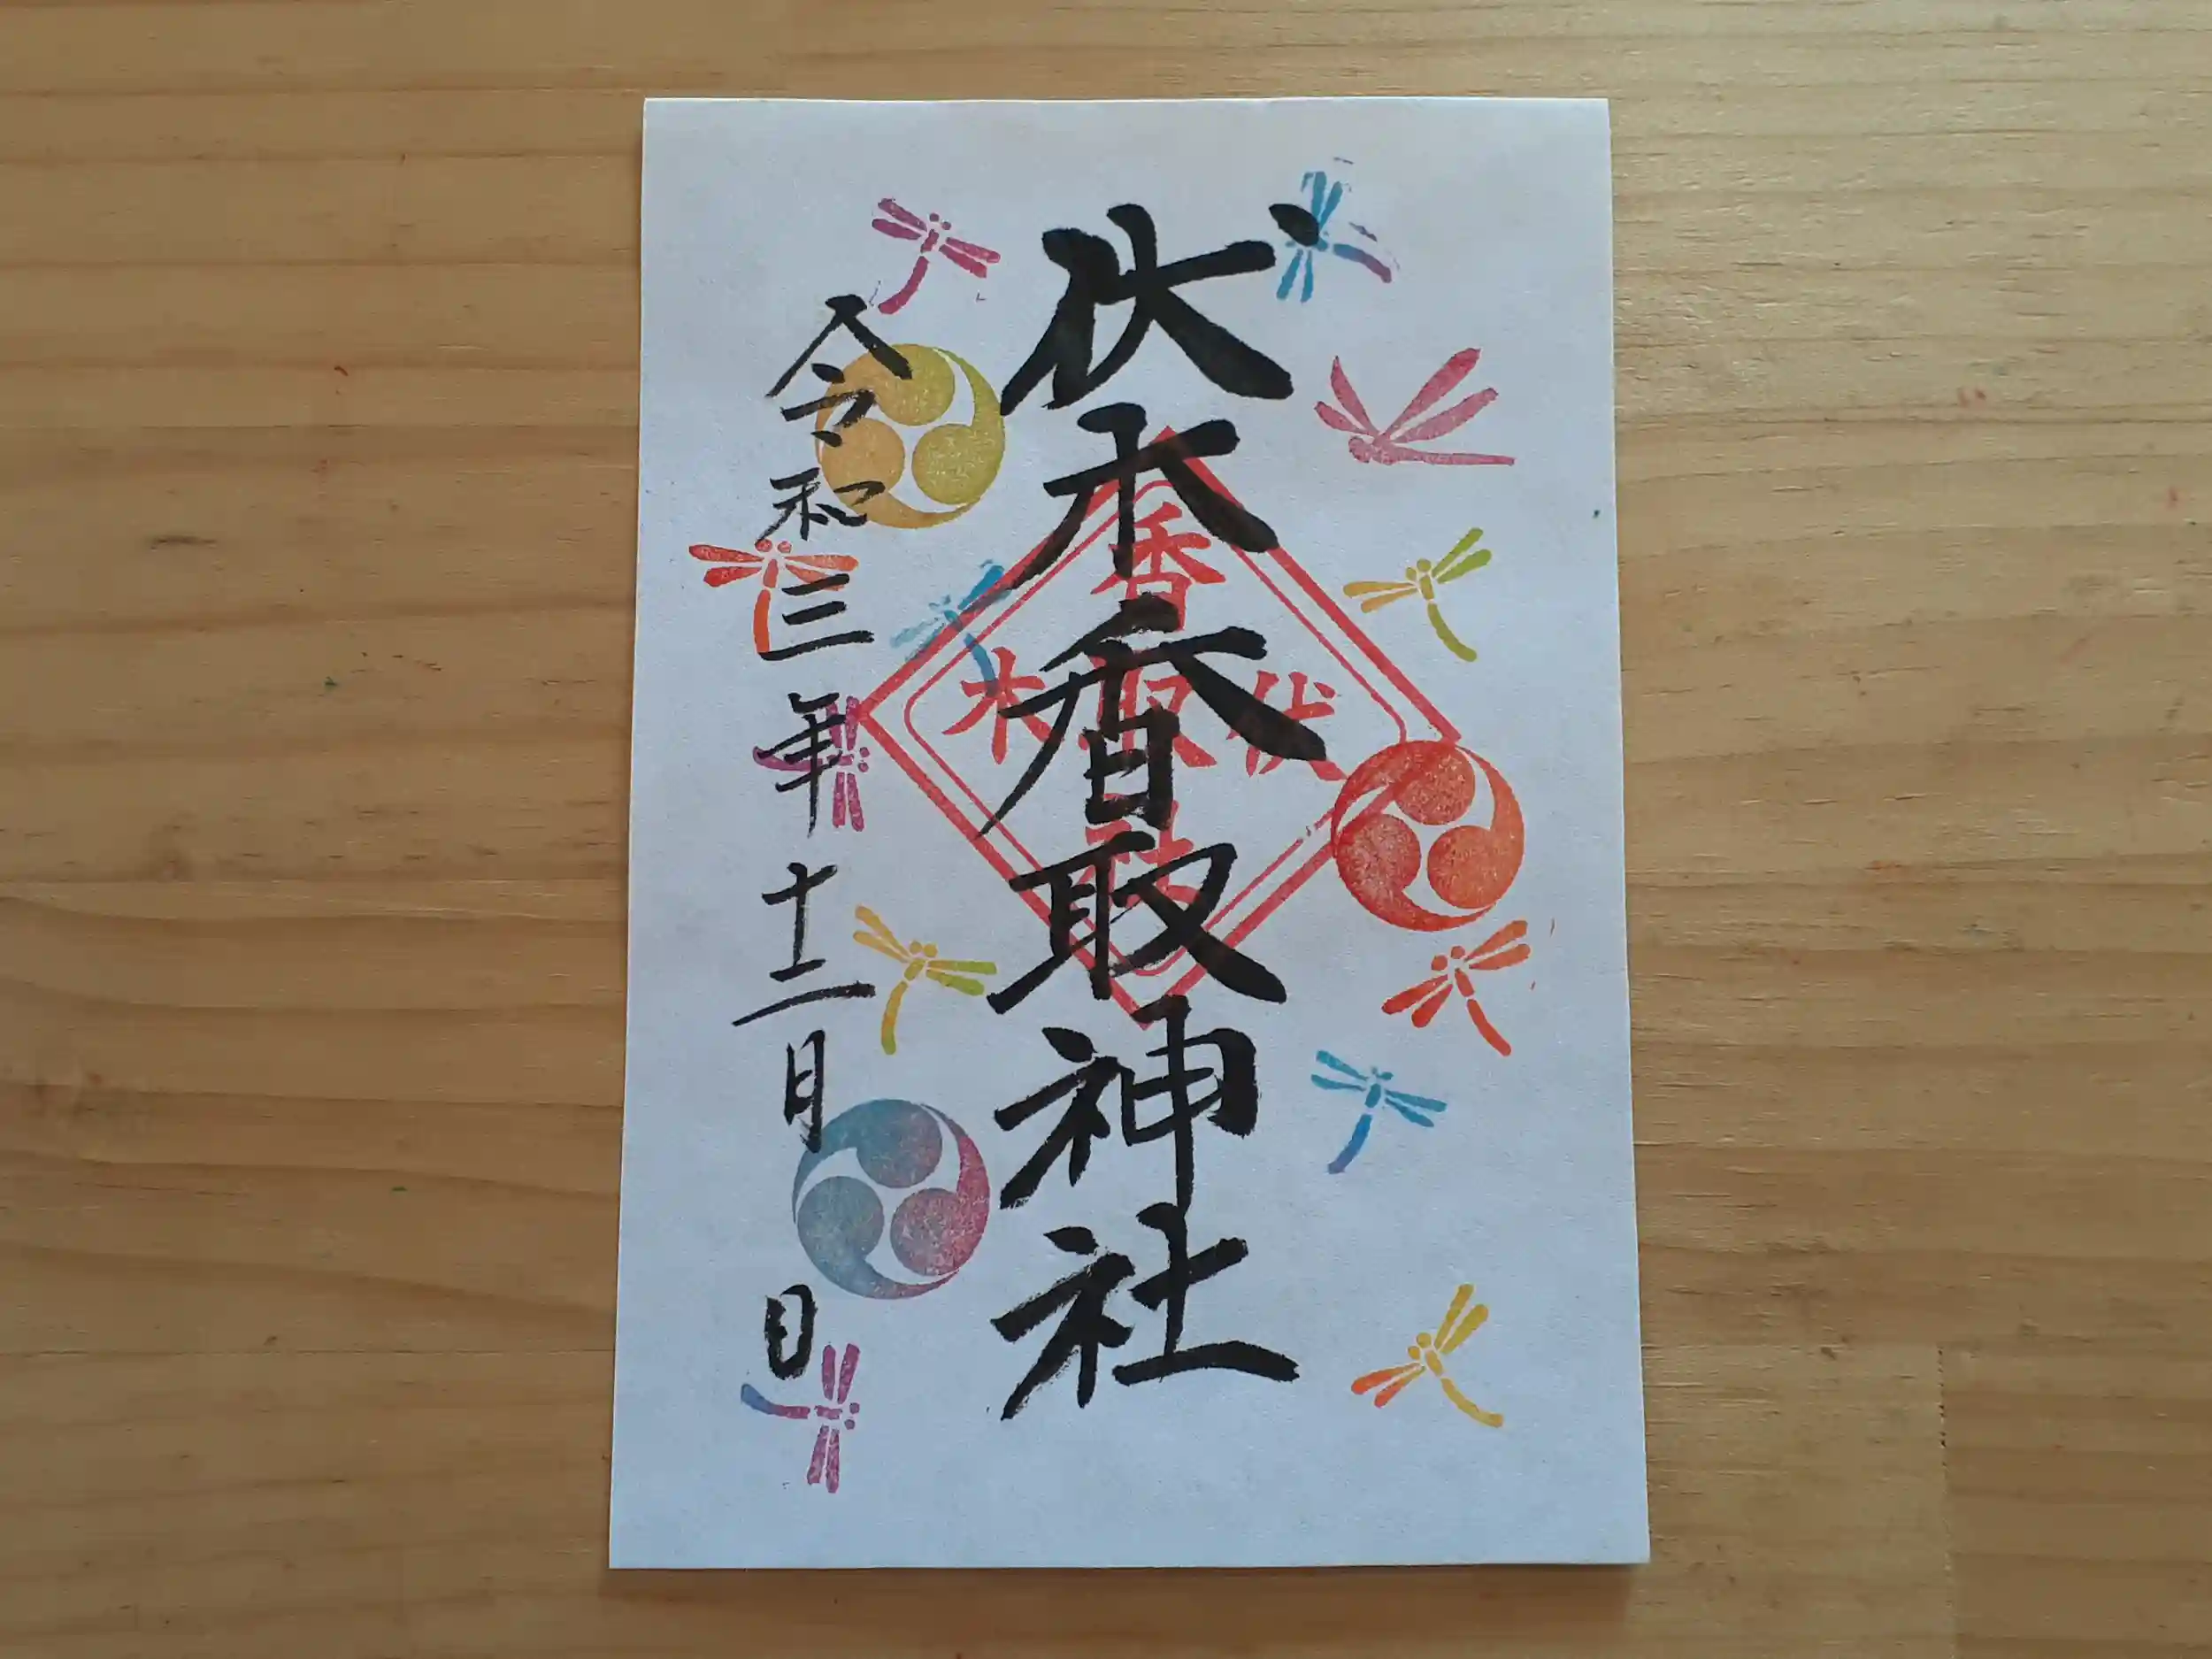 伏木香取神社
令和三年十二月 日
香
木取伏
社